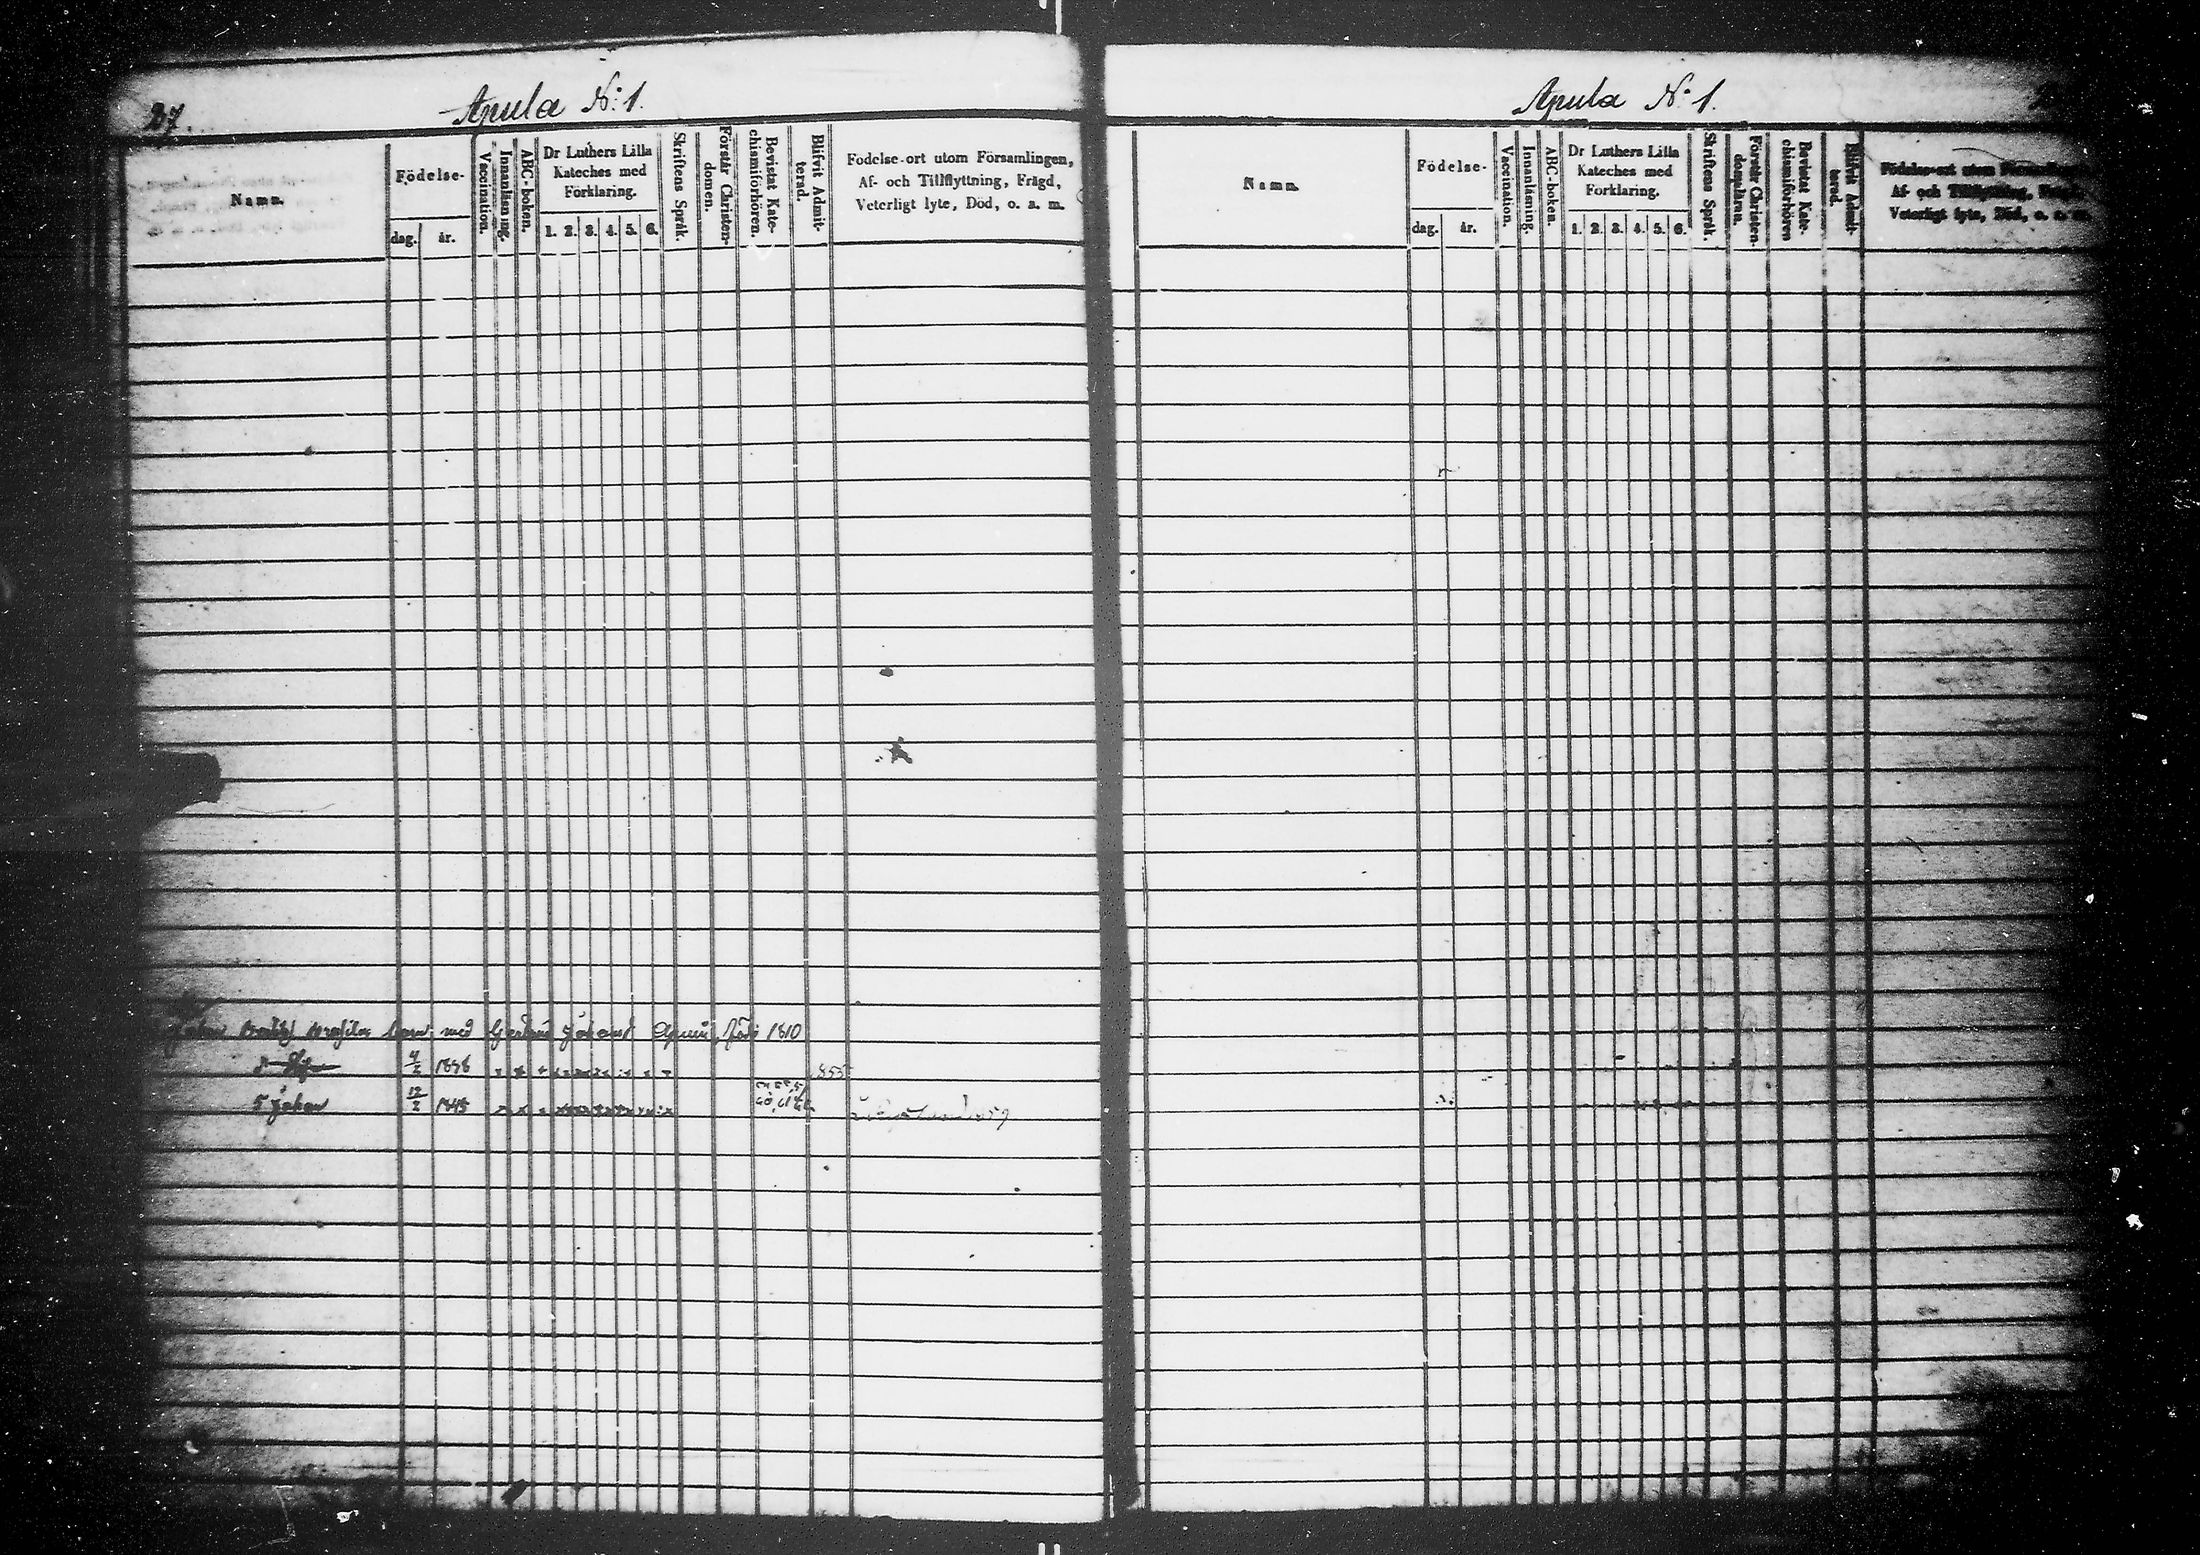 27.
Apula No: 1.
Namn.
Födelse-
dag.
år.
Vaccination.
Innanläsning.
ABC-boken.
Dr Luthers Lilla
Kateches med
Förklaring.
1. 2. 3. 4. 5. 6.
Skriftens Språk.
Förstår Christen-
domen.
Bevistat Kate-
chismiförhören.
Blifvit Admit-
terad.
Födelse-ort utom Församlingen,
Af- och Tillflyttning, Frägd,
Veterligt lyte, Död, o. s. m.
med Johans 1810
4/2 1838 855
S Johan 12/2 1845
Apula No 1.
Namn.
Födelse-
dag.
år.
Vaccination.
Innanläsning.
ABC-boken.
Dr Luthers Lilla
Kateches med
Förklaring.
1. 2. 3. 4. 5. 6.
Skriftens Språk.
Förstår Christen-
domsläran.
Bevistat Kate-
chismiförhören
Blifvit Admit-
terad.
Födelse-ort utom
Af- och Tillflyttning,
Veterligt lyte, Död, o. s. m.